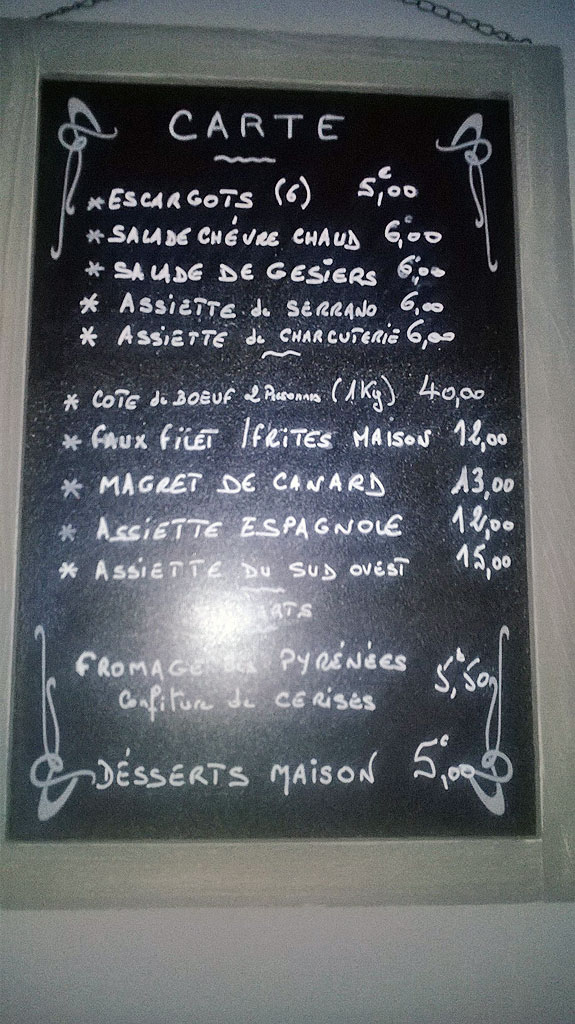 CARTE
* ESCARGOTS (6) 5€,00
* SALADE CHÉVRE CHAUD 6,00
* SALADE DE GESIERS 6,00
* ASSIETTE de SERRANO 6,00
* ASSIETTE de CHARCUTERIE 6,00
* COTE de BOEUF 2 Personnes (1Kg) 40,00
* FAUX FILET / FRITES MAISON 12,00
* MAGRET DE CANARD 13,00
* ASSIETTE ESPAGNOLE 12,00
* ASSIETTE DU SUD OUEST 15,00
FROMAGE des PYRÉNÉES 5€,50
Confiture de CERISES
DÉSSERTS MAISON 5€,00